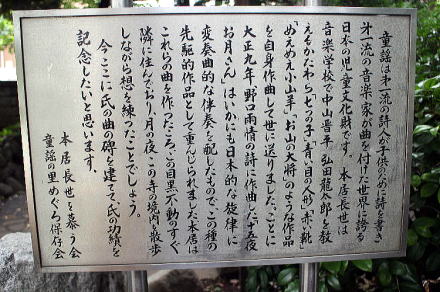 童謡は第一流の詩人が子供のために詩を書き
第一流の音楽家が曲を付けた世界に誇る
日本の児童文化財です。本居長世は
音楽学校で中山晋平、弘田龍太郎を教
えるかたわら「七つの子」「青い目の人形」「赤い靴」
「めえめえ小山羊」「お山の大将」のような作品
を自身作曲して世に送りました。ことに
大正九年、野口雨情の詩に作曲した「十五夜
お月さん」はいかにも日本的な旋律に
変奏曲的な伴奏を配したもので、この種の
先駆的作品として重んじられました。本居は
これらの曲を作ったころ、この目黒不動のすぐ
隣に住んでおり、月の夜、この寺の境内を散歩
しながら想を練ったことでしょう。
今ここに氏の曲の碑を建て、氏の功績を
記念したいと思います。
本居長世を慕う会
童謡の里めぐろ保存会